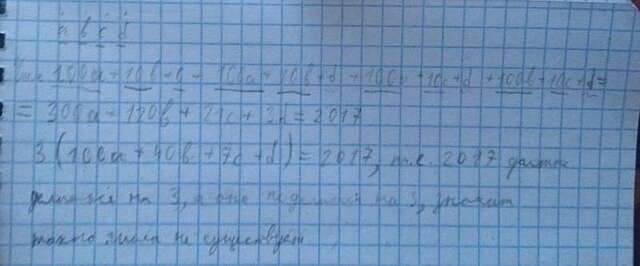 a b c d
100a + 10b + c + 100a + 10b + d + 100a + 10c + d + 100b + 10c + d =
= 300a + 120b + 21c + 3d = 2017
3(100a + 40b + 7c + d) = 2017, т.е. 2017 должно
делиться на 3, а оно не делится на 3, значит
такого числа не существует